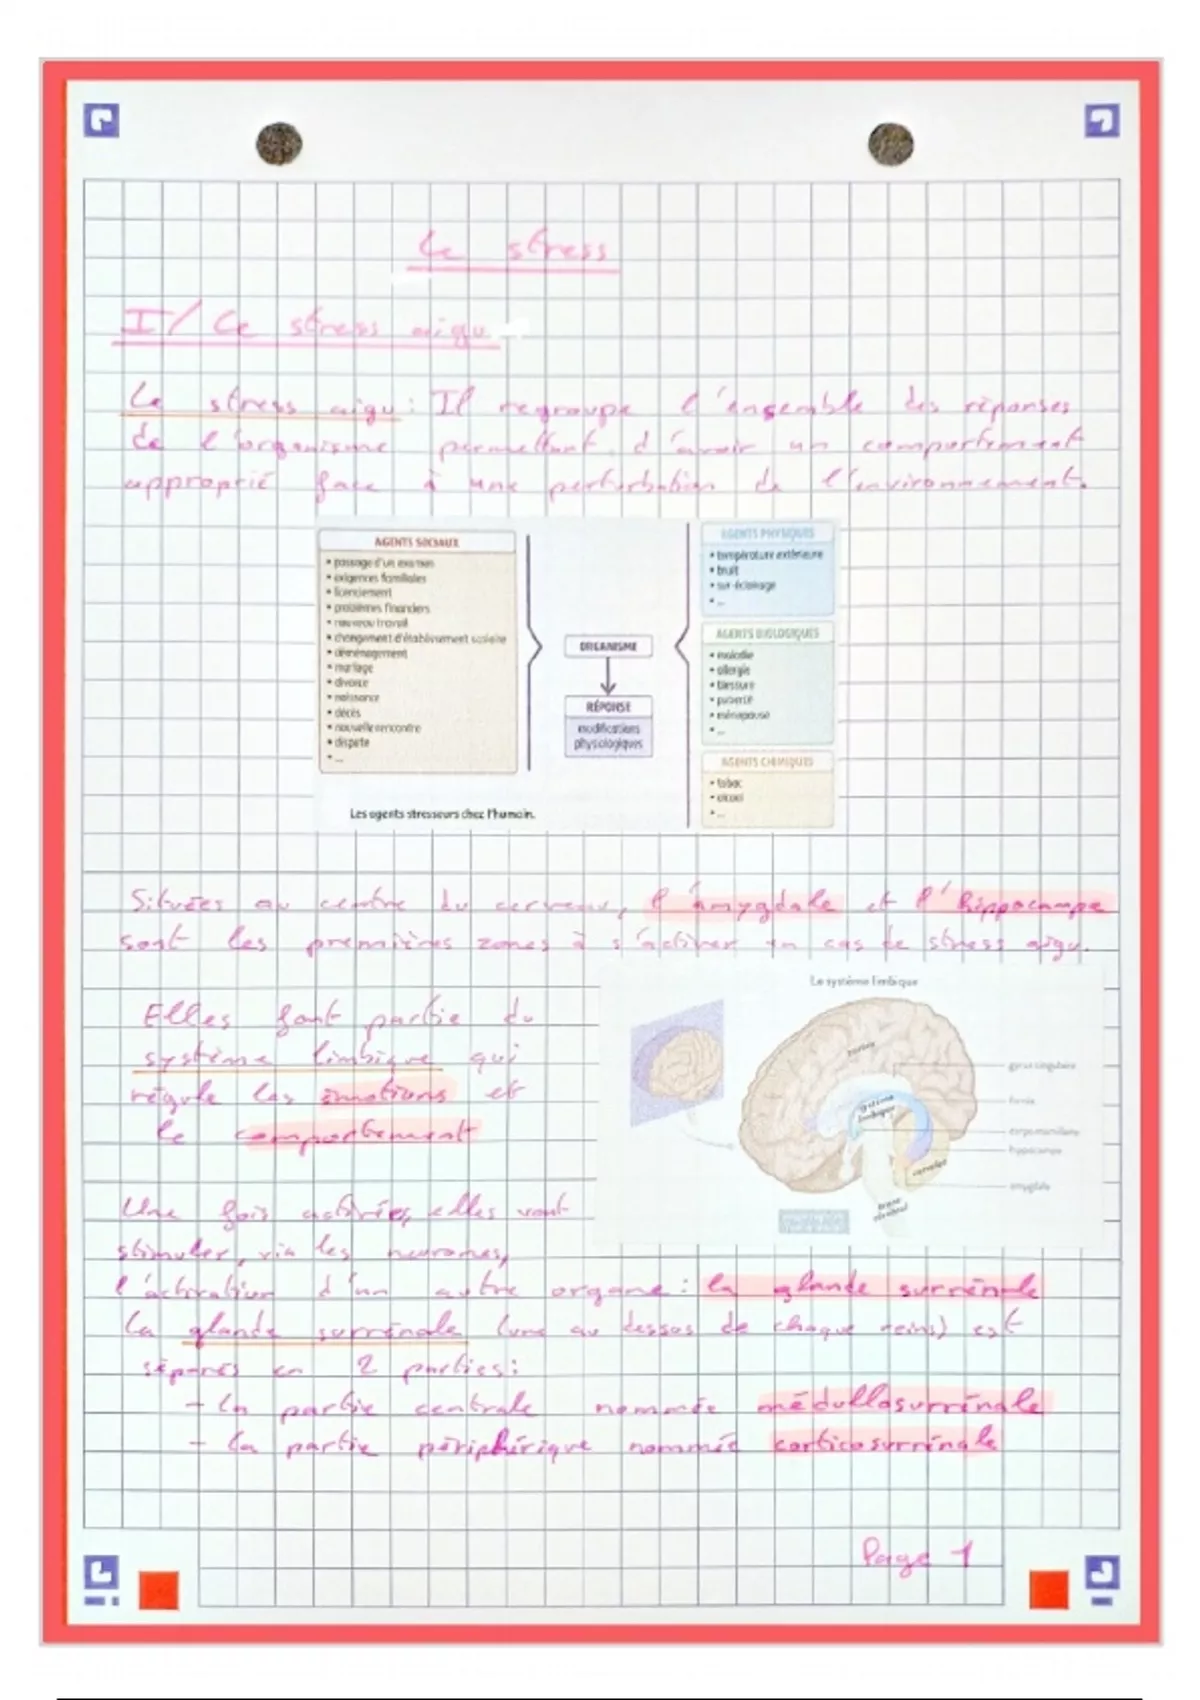 Le stress
I/ Le stress aigu
Le stress aigu : Il regroupe l'ensemble des réponses
de l'organisme permettant d'avoir un comportement
approprié face à une perturbation de l'environnement.
AGENTS SOCIAUX
• passage d'un examen
• exigences familiales
• licenciement
• problèmes financiers
• nouveau travail
• changement d'établissement scolaire
• déménagement
• mariage
• divorce
• naissance
• décès
• nouvelle rencontre
• dispute
• ...
ORGANISME
RÉPONSE
modifications
physiologiques
AGENTS PHYSIQUES
• température extérieure
• bruit
• sur-éclairage
• ...
AGENTS BIOLOGIQUES
• maladie
• allergie
• blessure
• puberté
• ménopause
• ...
AGENTS CHIMIQUES
• tabac
• alcool
• ...
Les agents stresseurs chez l'humain.
Situées au centre du cerveau, l'amygdale et l'hippocampe
sont les premières zones à s'activer en cas de stress aigu.
Le système limbique
cortex
système
limbique
cervelet
tronc
cérébral
gyrus cingulaire
fornix
corps mamillaire
hippocampe
amygdale
Elles font partie du
système limbique qui
régule les émotions et
le comportement
Une fois activées, elles vont
stimuler, via les neurones,
l'activation d'un autre organe : la glande surrénale
La glande surrénale (une au dessus de chaque reins) est
séparés en 2 parties :
- la partie centrale nommée médullosurrénale
- la partie périphérique nommée corticosurrénale
Page 1